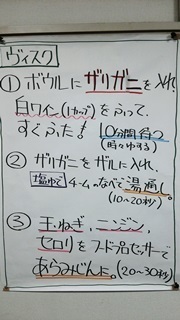 ヴィスク
① ボウルにザリガニを入れ
白ワイン(1カップ)をふって、
すぐふた! 10分間待つ
(時々ゆする)
② ザリガニをザルに入れ、
塩ゆでチームのなべで湯通し。
(10~20秒)
③ 玉ねぎ、ニンジン、
セロリをフードプロセッサーで
あらみじんよ。(20~30秒)